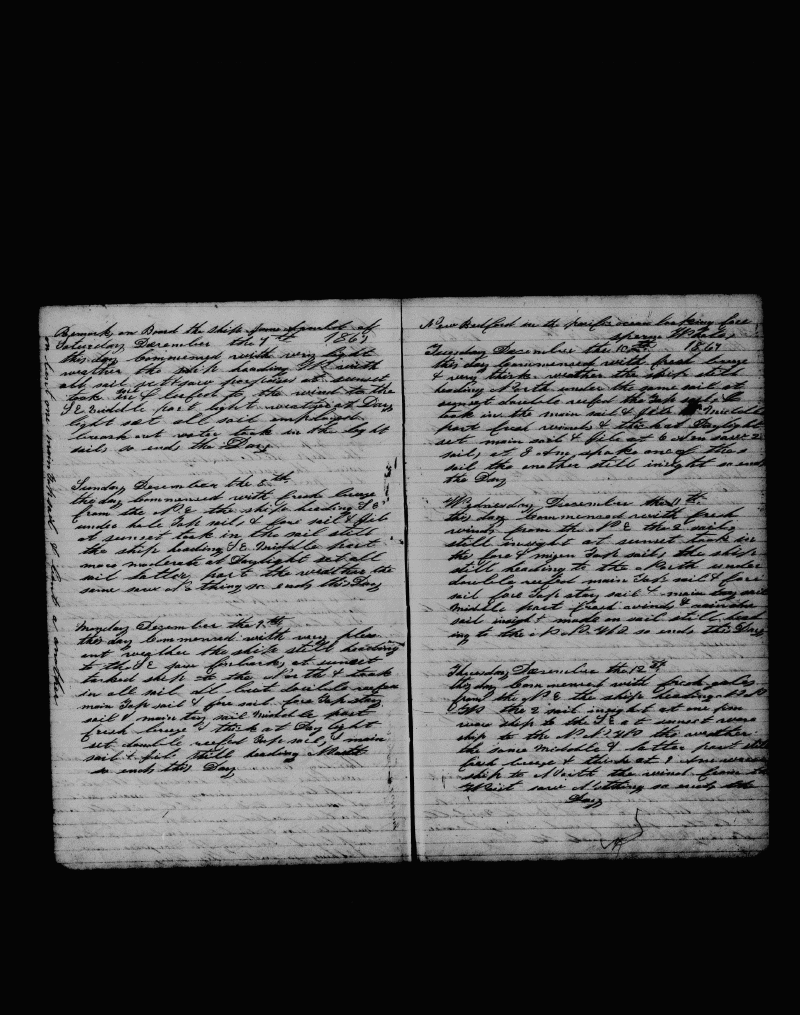 Remark on Board the Ship James Arnold of
Saturday December the 7th 1867
this day Commenced with very light
weather the ship heading W with
all sail set saw porpoises at sunset
took in & luffed to the wind to the
SE Middle part light weather at Day
light set all sail employed
break out water took in the light
sails so ends the Day
Sunday December the 8th
this day Commenced with fresh breeze
from the N E the ship heading S E
under hole Top sails & fore sail & Jib
at sunset took in the sail still
the ship heading S E Middle part
more moderate at Daylight set all
sail latter part the weather the
same saw Nothing so ends this Day
Monday December the 9th
this day Commenced with very pleas
ent weather the ship still heading
to the S E saw finbacks at sunset
tacked ship to the North & took
in all sail all but double reefed
main Top sail & fore sail fore Top stay
sail & main stay sail Middle part
fresh breeze & thick at Day light
set double reefed Top sails & main
sail & jib still heading North
so ends this Day
New Bedford in the pacific ocean looking for
sperm Whales
Tuesday December the 10th 1867
this day Commenced with fresh breeze
& very thick weather the ship still
heading North under the same sail at
sunset double reefed the Top sails &
took in the main sail & jib Middle
part fresh winds & thick at Daylight
set main sail & jib at 6 Am saw 2
sails at 8 Am spoke one of the
sail the another still insight so ends
the Day
Wednesday December the 11th
this day Commenced with fresh
winds from the N E the 2 sails
still insight at sunset took in
the fore & mizen Top sails the ship
still heading to the North under
double reefed main Top sail & fore
sail fore Top stay sail & main stay sail
Middle part fresh winds &
sail insight made in sail still head
ing to the N N W so ends this Day
Thursday December the 12th
this day Commenced with fresh gales
from the N E the ship heading N N
W the 2 sail insight at one pm
wore ship to the S E at sunset wore
ship to the N N W the weather
the same Middle & latter part still
fresh breeze & thick at 9 Am wore
ship to North the wind from the
West saw Nothing so ends the
Day